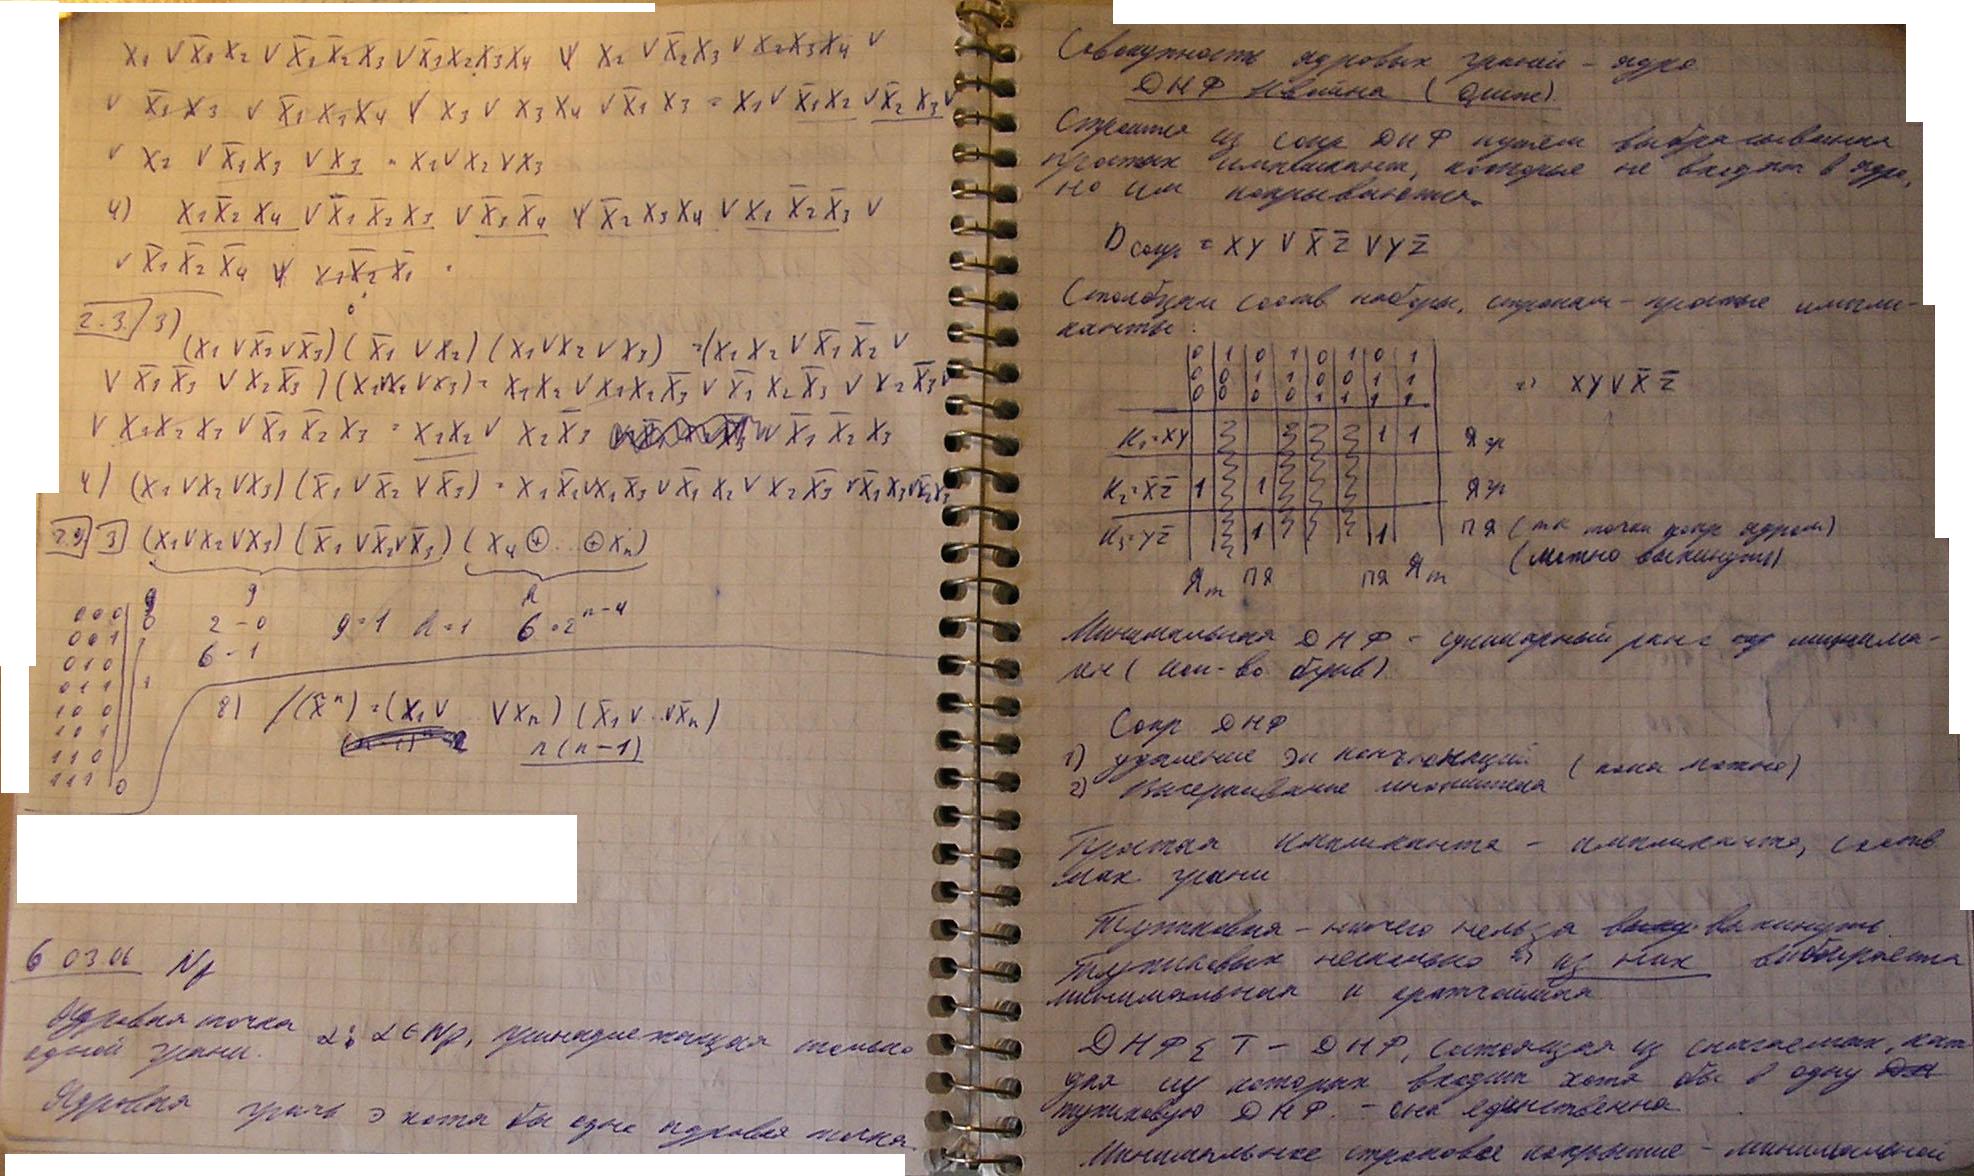 x₁ ∨ x̄₁ x₂ ∨ x̄₁ x̄₂ x₃ ∨ x̄₁ x₂ x₃ x₄ ∨ x₂ ∨ x̄₂ x₃ ∨ x₂ x₃ x₄ ∨
∨ x̄₁ x₃ ∨ x̄₁ x₃ x₄ ∨ x₃ ∨ x₃ x₄ ∨ x̄₁ x₃ = x₁ ∨ x̄₁ x₂ ∨ x̄₂ x₃ ∨
∨ x₂ ∨ x̄₁ x₃ ∨ x₃ = x₁ ∨ x₂ ∨ x₃
4) x₁ x̄₂ x₄ ∨ x̄₁ x̄₂ x₃ ∨ x̄₃ x̄₄ ∨ x̄₂ x₃ x₄ ∨ x₁ x̄₂ x̄₃ ∨
∨ x̄₁ x̄₂ x̄₄ ∨ x₁ x̄₂ x̄₁
0
2.3. 3)
(x₁ ∨ x̄₂ ∨ x̄₃) (x̄₁ ∨ x₂) (x₁ ∨ x₂ ∨ x₃) = (x₁ x₂ ∨ x̄₁ x̄₂ ∨
∨ x̄₁ x̄₃ ∨ x₂ x̄₃) (x₁ ∨ x₂ ∨ x₃) = x₁ x₂ ∨ x₁ x₂ x̄₃ ∨ x̄₁ x₂ x̄₃ ∨ x₂ x̄₃ ∨
∨ x₁ x₂ x₃ ∨ x̄₁ x̄₂ x₃ = x₁ x₂ ∨ x₂ x̄₃ ∨ x̄₁ x̄₂ x₃
4) (x₁ ∨ x₂ ∨ x₃) (x̄₁ ∨ x̄₂ ∨ x̄₃) = x₁ x̄₂ ∨ x₁ x̄₃ ∨ x̄₁ x₂ ∨ x₂ x̄₃ ∨ x̄₁ x₃ ∨ x̄₂ x₃
2.9 3 (x₁ ∨ x₂ ∨ x₃) (x̄₁ ∨ x̄₂ ∨ x̄₃) (x₄ ⊕ … ⊕ xₙ)
g g h
000 0 2 – 0 g = 1 h = 1 6 · 2ⁿ⁻⁴
001 6 – 1
010
011 1
100
101
110
111 0
8) f(x̃ⁿ) = (x₁ ∨ … ∨ xₙ) (x̄₁ ∨ … ∨ x̄ₙ)
n(n–1)
6 03.06 N_f
Ядровая точка α: α ∈ N_f, принадлежащая только
одной грани.
Ядровая грань ∋ хотя бы одна ядровая точка
Совокупность ядровых граней – ядро
ДНФ Квайна (Quine)
Строится из сокр ДНФ путём выбрасывания
простых импликант, которые не входят в ядро,
но им покрываются.
D сокр = xy ∨ x̄ z̄ ∨ y z̄
Столбцам соотв наборы, строкам – простые импли-
канты.
0 1 0 1 0 1 0 1
0 0 1 1 0 0 1 1 => xy ∨ x̄ z̄
0 0 0 0 1 1 1 1
K₁ = xy 1 1 Я гр
K₂ = x̄ z̄ 1 1 Я гр
K₃ = y z̄ 1 1 ПЯ (тк точки покр ядром)
(можно выкинуть)
Я т ПЯ ПЯ Я т
Минимальная ДНФ – суммарный ранг минима-
лен (кол-во букв).
Сокр ДНФ
1) удаление эл конъюнкций (пока можно)
2) Вычёркивание множителя
Простая импликанта – импликанта, соотв
мак грани
Тупиковая – ничего нельзя выкинуть.
Тупиковых несколько => из них выбирается
минимальная и кратчайшая
ДНФ Σ Т – ДНФ, состоящая из слагаемых, каж-
дая из которых входит хотя бы в одну
тупиковую ДНФ. – она единственна
Минимальное строковое покрытие – минимальной